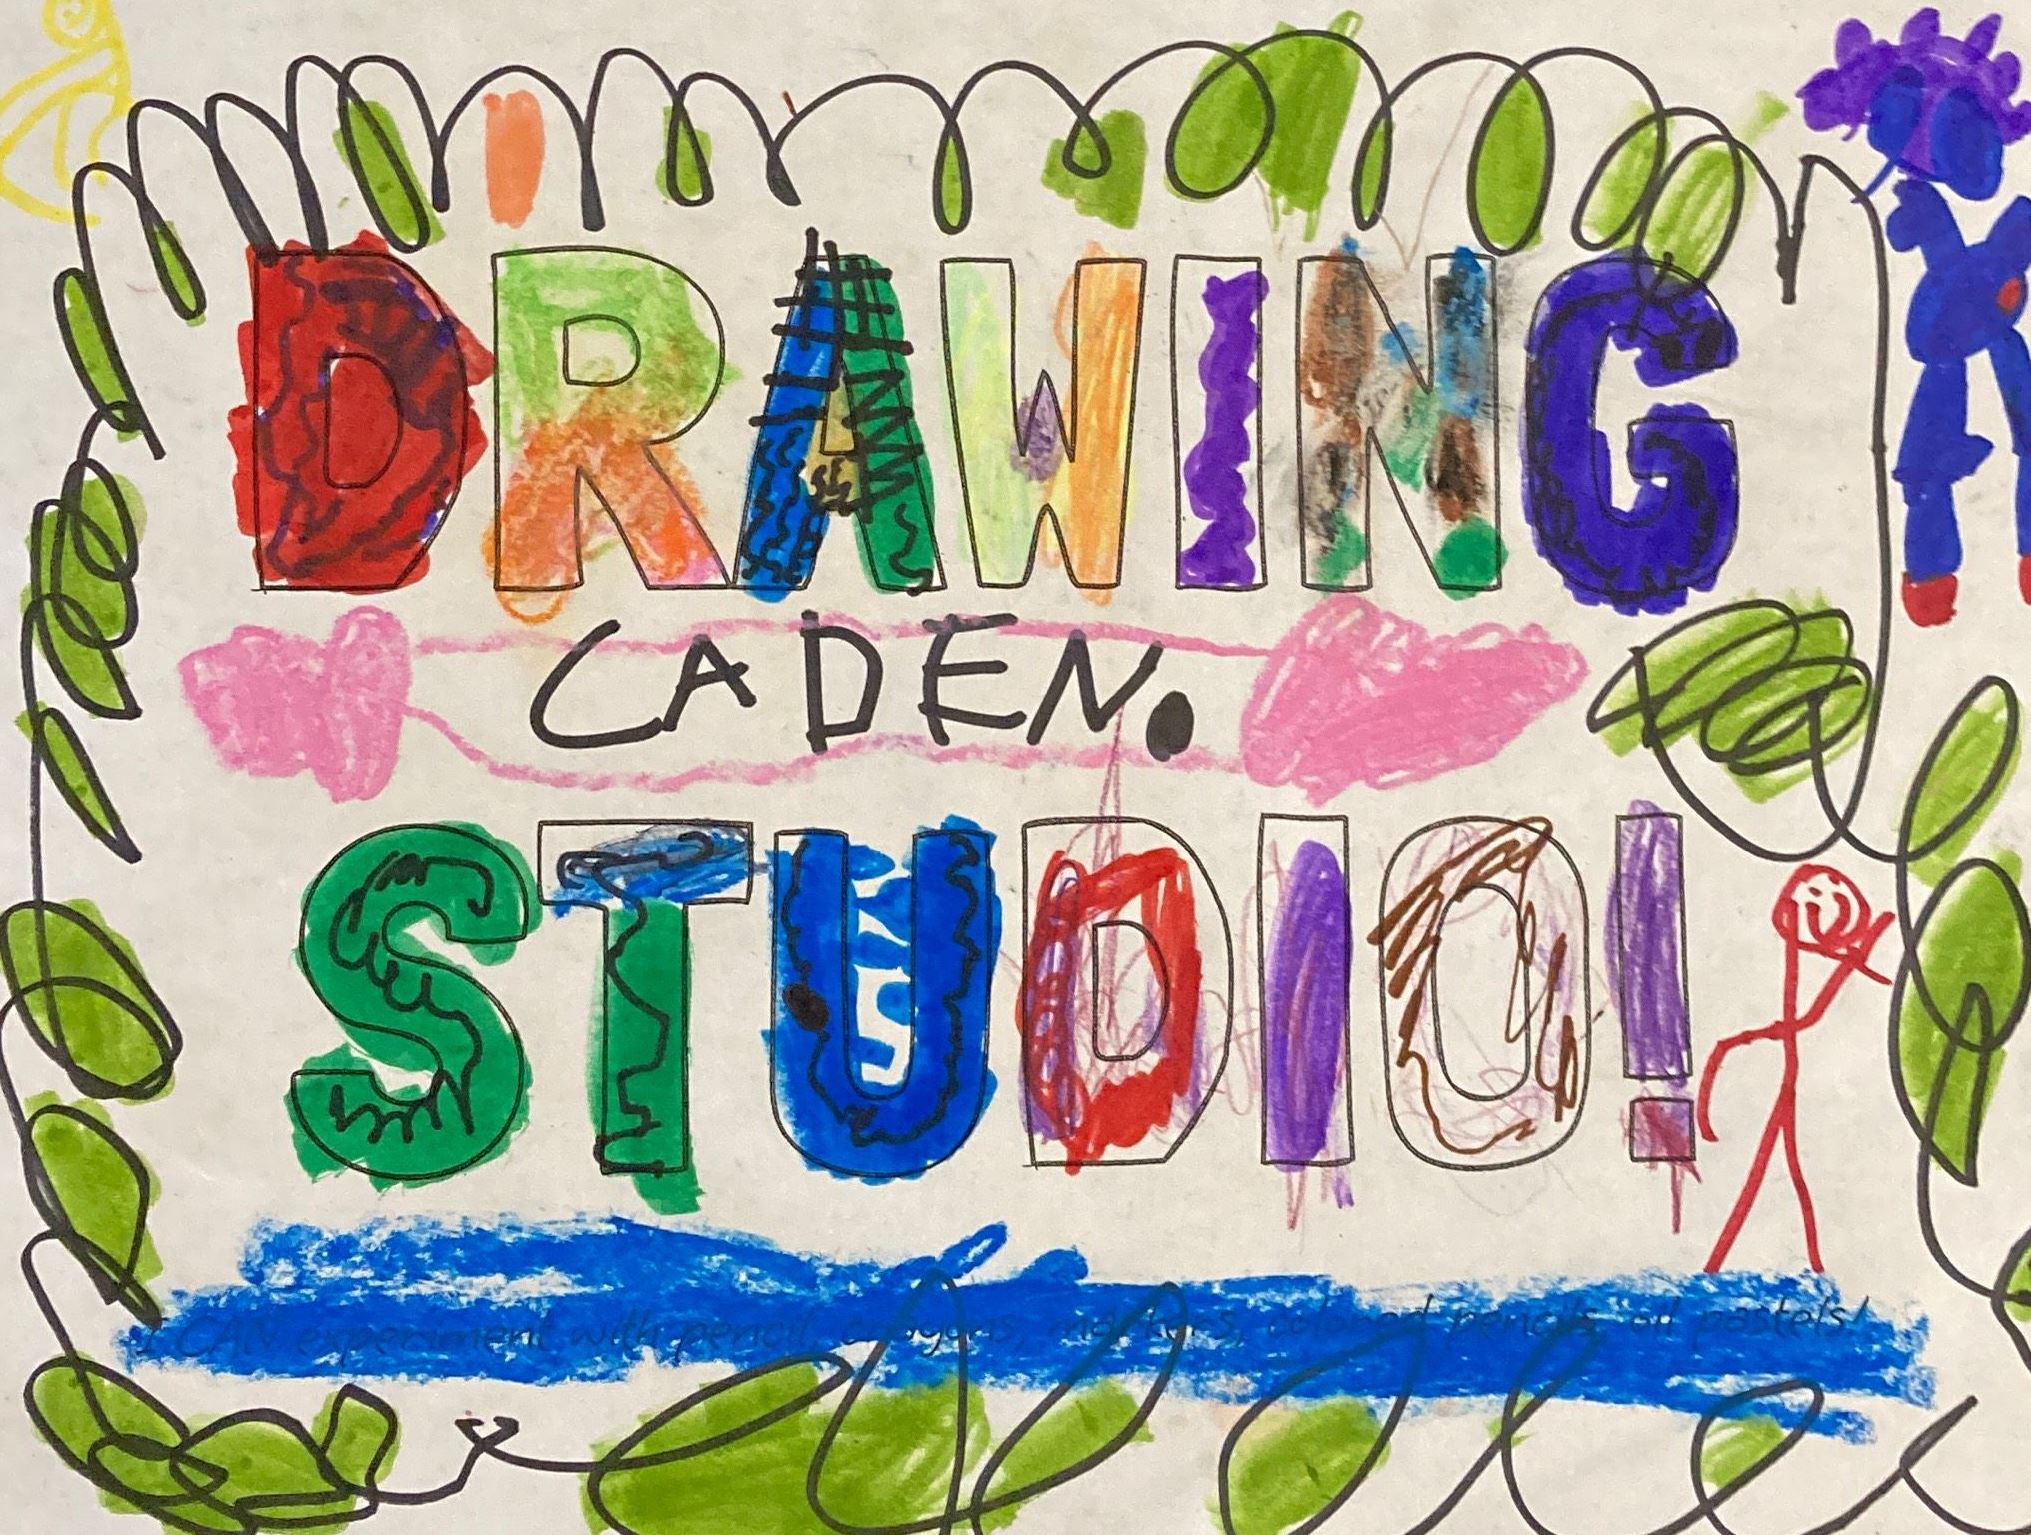 DRAWING
CADEN.
STUDIO!
I CAN experiment with pencil, crayons, markers, colored pencils, oil pastels!